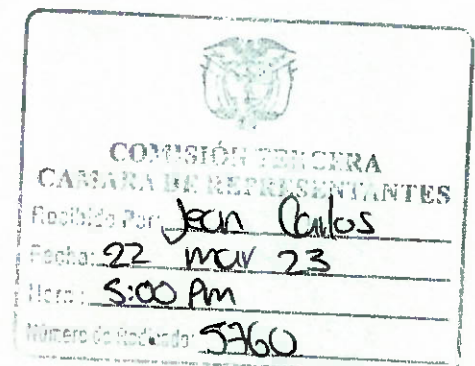 COMISIÓN TERCERA
CAMARA DE REPRESENTANTES
Recibido Por: Jean Carlos
Fecha: 22 mar 23
Hora: 5:00 Pm
Número de Radicado: 5760